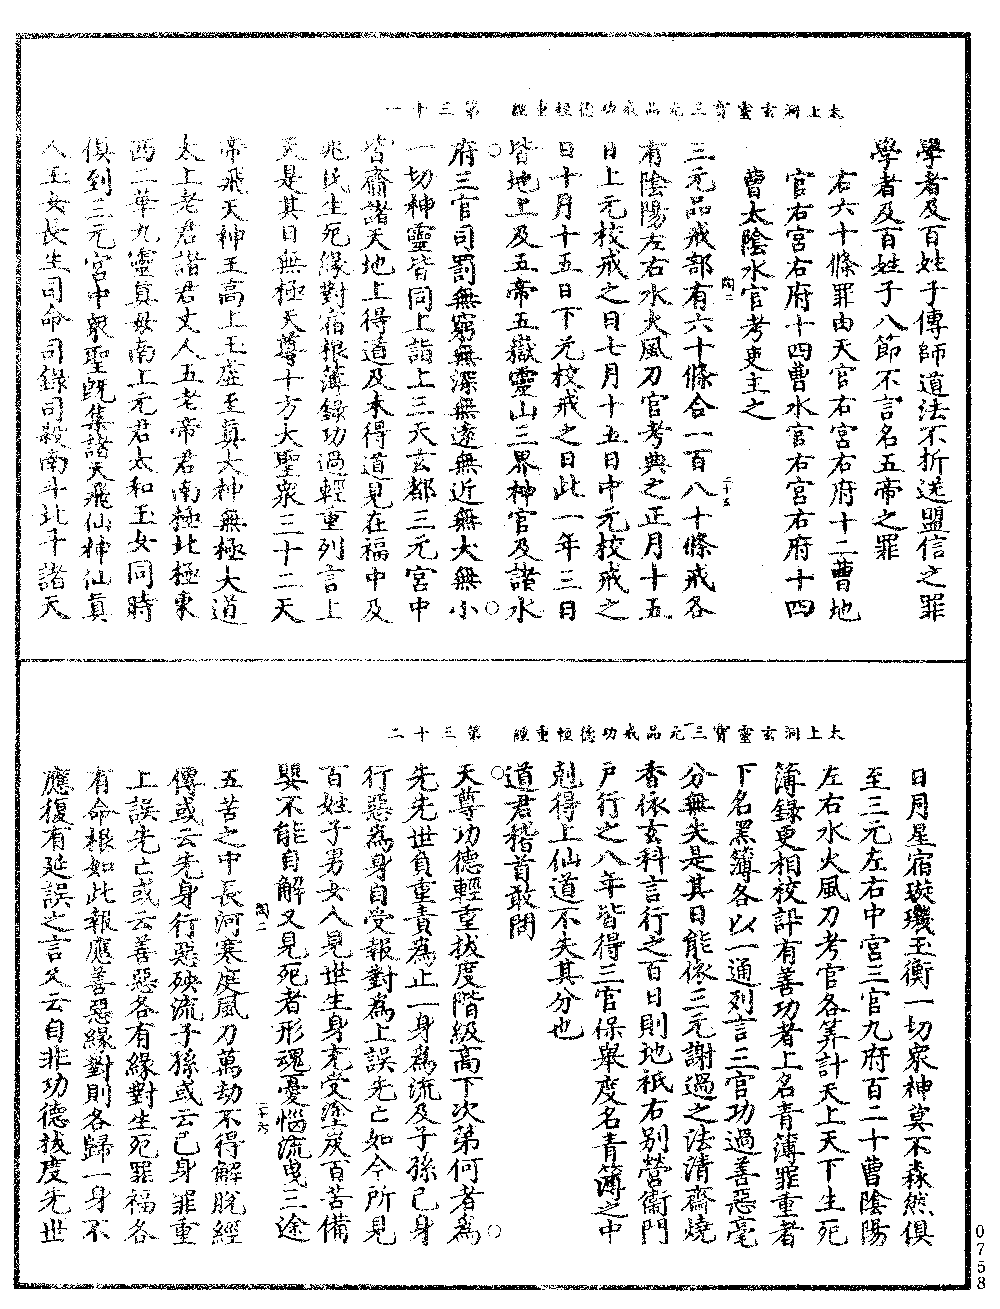 太上洞玄靈寶三元品戒功德輕重經　第三十一
學者及百姓子傳師道法不折送盟信之罪
學者及百姓子八節不言名五帝之罪
右六十條罪由天官右宮右府十二曹地
官右宮右府十四曹水官右宮右府十四
曹太陰水官考吏主之
三元品戒部有六十條合一百八十條戒各
有陰陽左右水火風刀官考典之正月十五
日上元校戒之日七月十五日中元校戒之
日十月十五日下元校戒之日此一年三日
皆地上及五帝五嶽靈山三界神官及諸水
府三官司罰無窮無深無遠無近無大無小
一切神靈皆同上詣上三天玄都三元宮中
皆齎諸天地上得道及未得道見在福中及
兆民生死緣對宿根簿錄功過輕重列言上
天是其日無極天尊十方大聖衆三十二天
帝飛天神王高上玉虛至真大神無極大道
太上老君諸君丈人五老帝君南極北極東
西二華九靈真母南上元君太和玉女同時
俱到三元宮中衆聖旣集諸天飛仙神仙真
人玉女長生司命司錄司殺南斗北斗諸天
太上洞玄靈寶三元品戒功德輕重經　第三十二
日月星宿璇璣玉衡一切衆神莫不森然俱
至三元左右中宮三官九府百二十曹陰陽
左右水火風刀考官各算計天上天下生死
簿錄更相校訃有善功者上名青簿罪重者
下名黑簿各以一通列言三官功過善惡毫
分無失是其日能依三元謝過之法清齋燒
香依玄科言行之百日則地祇右別營衛門
戶行之八年皆得三官保舉度名青簿之中
剋得上仙道不失其分也
道君稽首敢問
天尊功德輕重拔度階級高下次第何者爲
先先世負重責爲止一身爲流及子孫已身
行惡爲身自受報對爲上誤先亡如今所見
百姓子男女人見世生身充受塗炭百苦備
嬰不能自解又見死者形魂憂惱流曳三途
五苦之中長河寒庭風刀萬劫不得解脫經
傳或云先身行惡殃流子孫或云已身罪重
上誤先亡或云善惡各有緣對生死罪福各
有命根如此報應善惡緣對則各歸一身不
應復有延誤之言又云自非功德拔度先世
0758